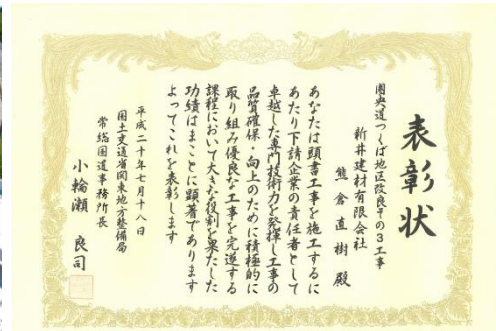 表彰状
圏央道つくば地区改良その3工事
新井建材有限会社
熊倉直樹 殿
あなたは頭書工事を施工するに
あたり下請企業の責任者として
卓越した専門技術力を発揮し工事の
品質確保・向上のために積極的に
取り組み優良な工事を完遂する
課程において大きな役割を果たした
功績はまことに顕著であります
よってこれを表彰します
平成二十年七月十八日
国土交通省関東地方整備局
常総国道事務所長
小輪瀬 良司